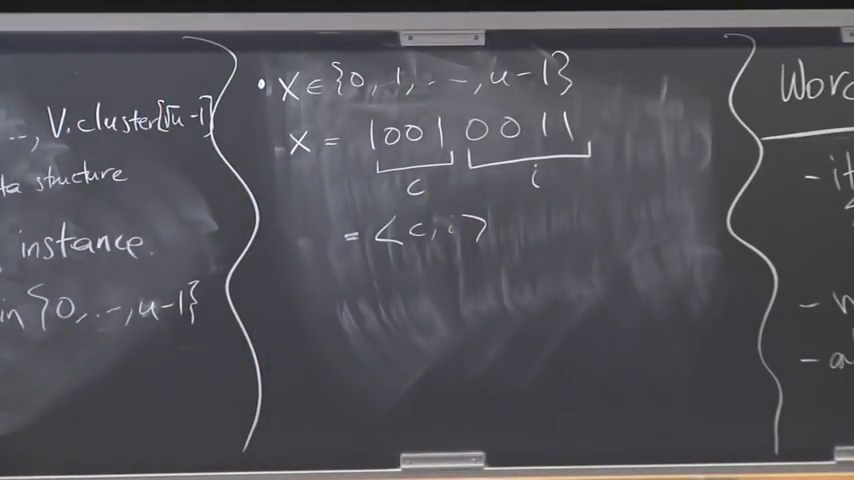 .., V.cluster[√u-1]
ta structure
instance.
in {0, .-, u-1}
• X ∈ {0, 1, . -, u-1}
X = 1001 0011
c i
= <c, i>
Word
- it
-
- a